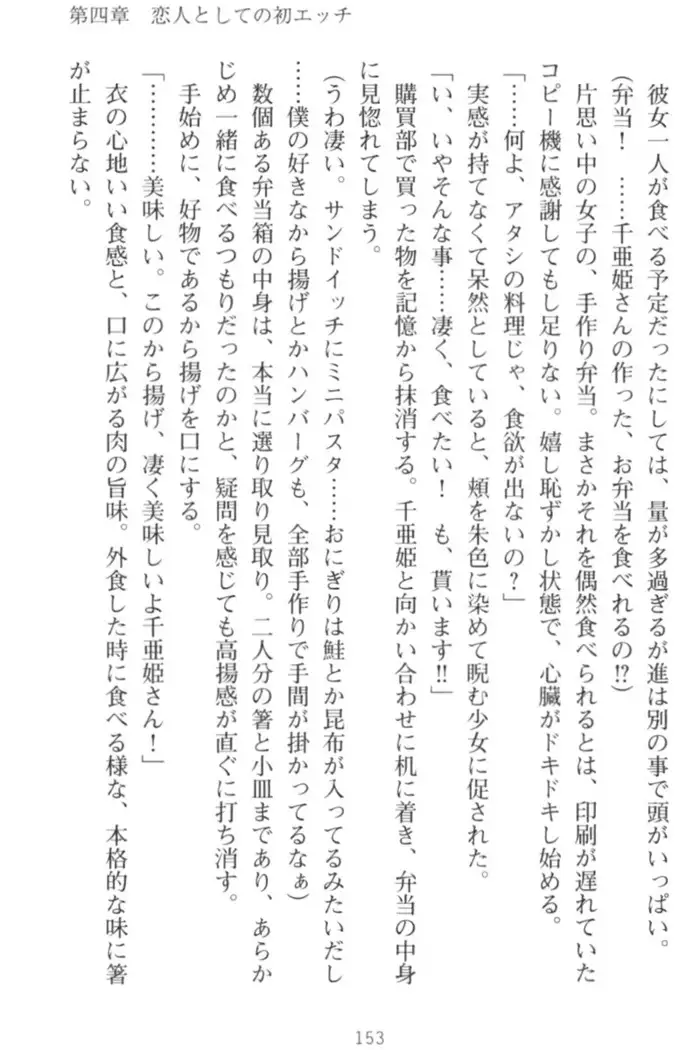 第四章　恋人としての初エッチ
彼女一人が食べる予定だったにしては、量が多過ぎるが進は別の事で頭がいっぱい。
(弁当！　……千亜姫さんの作った、お弁当を食べれるの!?)
片思い中の女子の、手作り弁当。まさかそれを偶然食べられるとは、印刷が遅れていた
コピー機に感謝してもし足りない。嬉し恥ずかし状態で、心臓がドキドキし始める。
「……何よ、アタシの料理じゃ、食欲が出ないの？」
実感が持てなくて呆然としていると、頬を朱色に染めて睨む少女に促された。
「い、いやそんな事……凄く、食べたい！　も、貰います!!」
購買部で買った物を記憶から抹消する。千亜姫と向かい合わせに机に着き、弁当の中身
に見惚れてしまう。
(うわ凄い。サンドイッチにミニパスタ……おにぎりは鮭とか昆布が入ってるみたいだし
……僕の好きなから揚げとかハンバーグも、全部手作りで手間が掛かってるなぁ)
数個ある弁当箱の中身は、本当に選り取り見取り。二人分の箸と小皿まであり、あらか
じめ一緒に食べるつもりだったのかと、疑問を感じても高揚感が直ぐに打ち消す。
手始めに、好物であるから揚げを口にする。
「…………美味しい。このから揚げ、凄く美味しいよ千亜姫さん！」
衣の心地いい食感と、口に広がる肉の旨味。外食した時に食べる様な、本格的な味に箸
が止まらない。
153